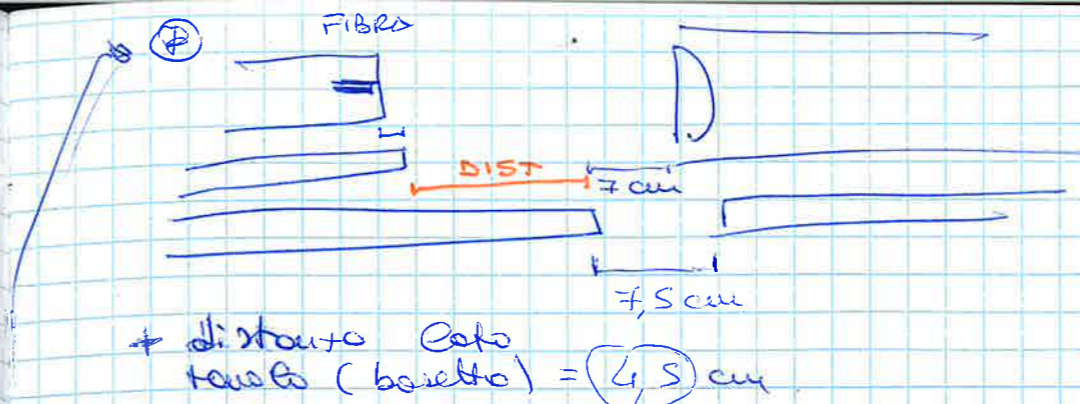 P
FIBRA
DIST
7 cm
7,5 cm
distanza lato
tavolo (basetta) = 4,5 cm